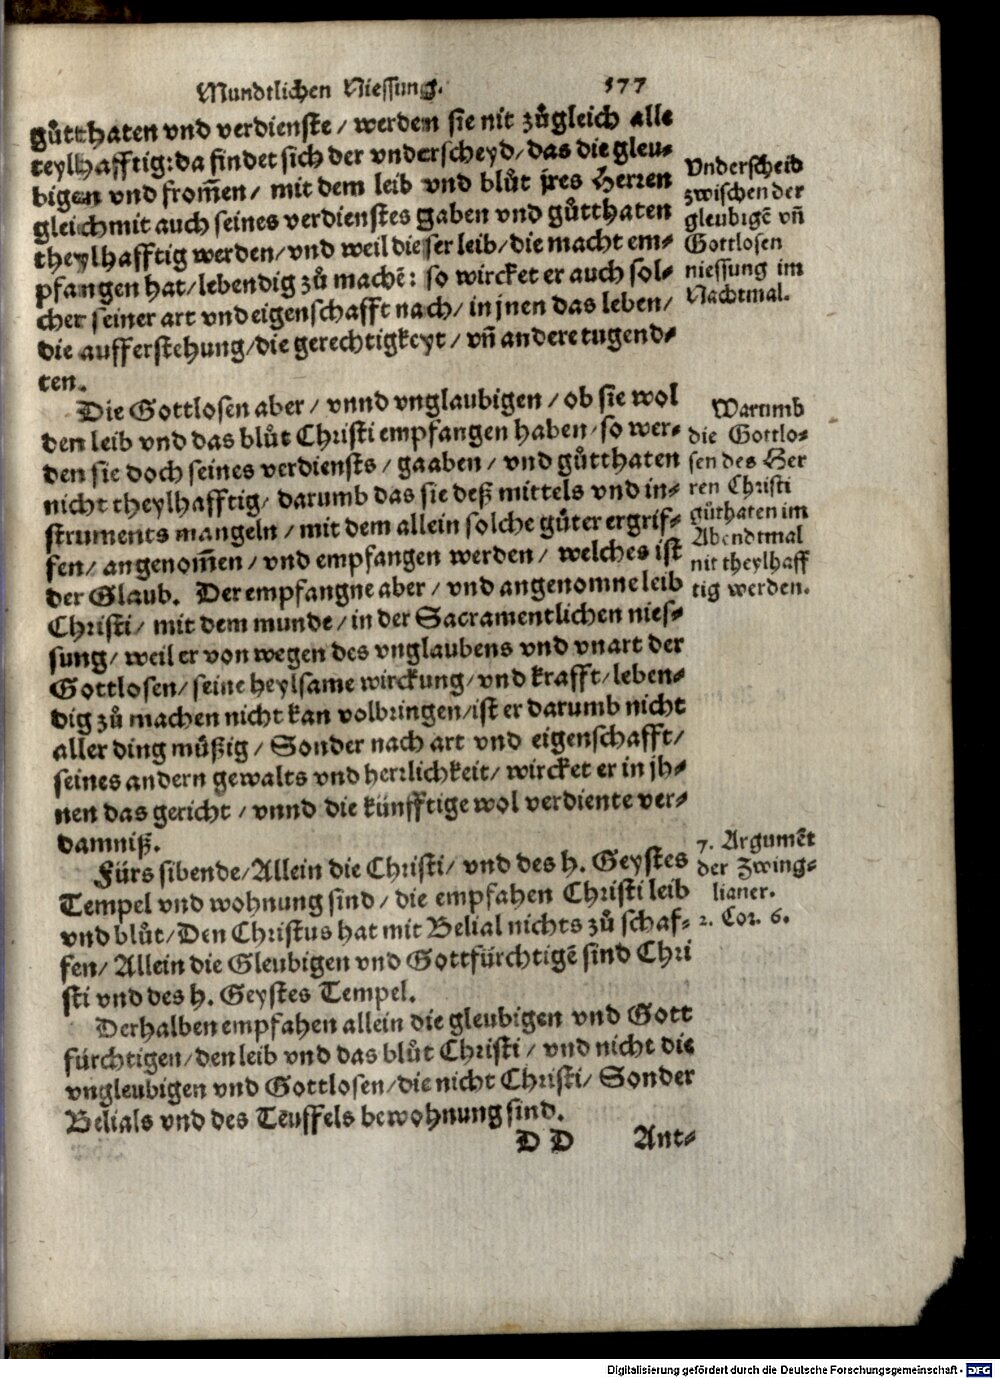 Mundtlichen Niessung. 577
gůtthaten vnd verdienste / werden sie nit zůgleich alle
teylhafftig: da findet sich der vnderscheyd / das die gleu⸗
bigen vnd from̃en / mit dem leib vnd blůt jres Herren
gleichmit auch seines verdienstes gaben vnd gůtthaten
theylhafftig werden / vnd weil dieser leib / die macht em⸗
pfangen hat / lebendig zů machẽ: so wircket er auch sol⸗
cher seiner art vnd eigenschafft nach / in jnen das leben /
die aufferstehung / die gerechtigkeyt / vñ andere tugend⸗
ten.
Vnderscheid
zwischen der
gleubigẽ vñ
Gottlosen
niessung im
Nachtmal.
Die Gottlosen aber / vnnd vnglaubigen / ob sie wol
den leib vnd das blůt Christi empfangen haben / so wer⸗
den sie doch seines verdiensts / gaaben / vnd gůtthaten
nicht theylhafftig / darumb das sie deß mittels vnd in⸗
struments mangeln / mit dem allein solche gůter ergrif⸗
fen / angenom̃en / vnd empfangen werden / welches ist
der Glaub. Der empfangne aber / vnd angenomne leib
Christi / mit dem munde / in der Sacramentlichen nies⸗
sung / weil er von wegen des vnglaubens vnd vnart der
Gottlosen / seine heylsame wirckung / vnd krafft / leben⸗
dig zů machen nicht kan volbringen / ist er darumb nicht
aller ding můßig / Sonder nach art vnd eigenschafft /
seines andern gewalts vnd herrlichkeit / wircket er in jh⸗
nen das gericht / vnnd die künfftige wol verdiente ver⸗
damniß.
Warumb
die Gottlo⸗
sen des Her
ren Christi
gůthaten im
Abendtmal
nit theylhaff
tig werden.
Fürs sibende / Allein die Christi / vnd des h. Geystes
Tempel vnd wohnung sind / die empfahen Christi leib
vnd blůt / Den Christus hat mit Belial nichts zů schaf⸗
fen / Allein die Gleubigen vnd Gottfürchtigẽ sind Chri
sti vnd des h. Geystes Tempel.
7. Argumẽt
der Zwing⸗
lianer.
2. Cor. 6.
Derhalben empfahen allein die gleubigen vnd Gott
fürchtigen / den leib vnd das blůt Christi / vnd nicht die
vngleubigen vnd Gottlosen / die nicht Christi / Sonder
Belials vnd des Teuffels bewohnung sind.
D D Ant⸗
Digitalisierung gefördert durch die Deutsche Forschungsgemeinschaft - DFG